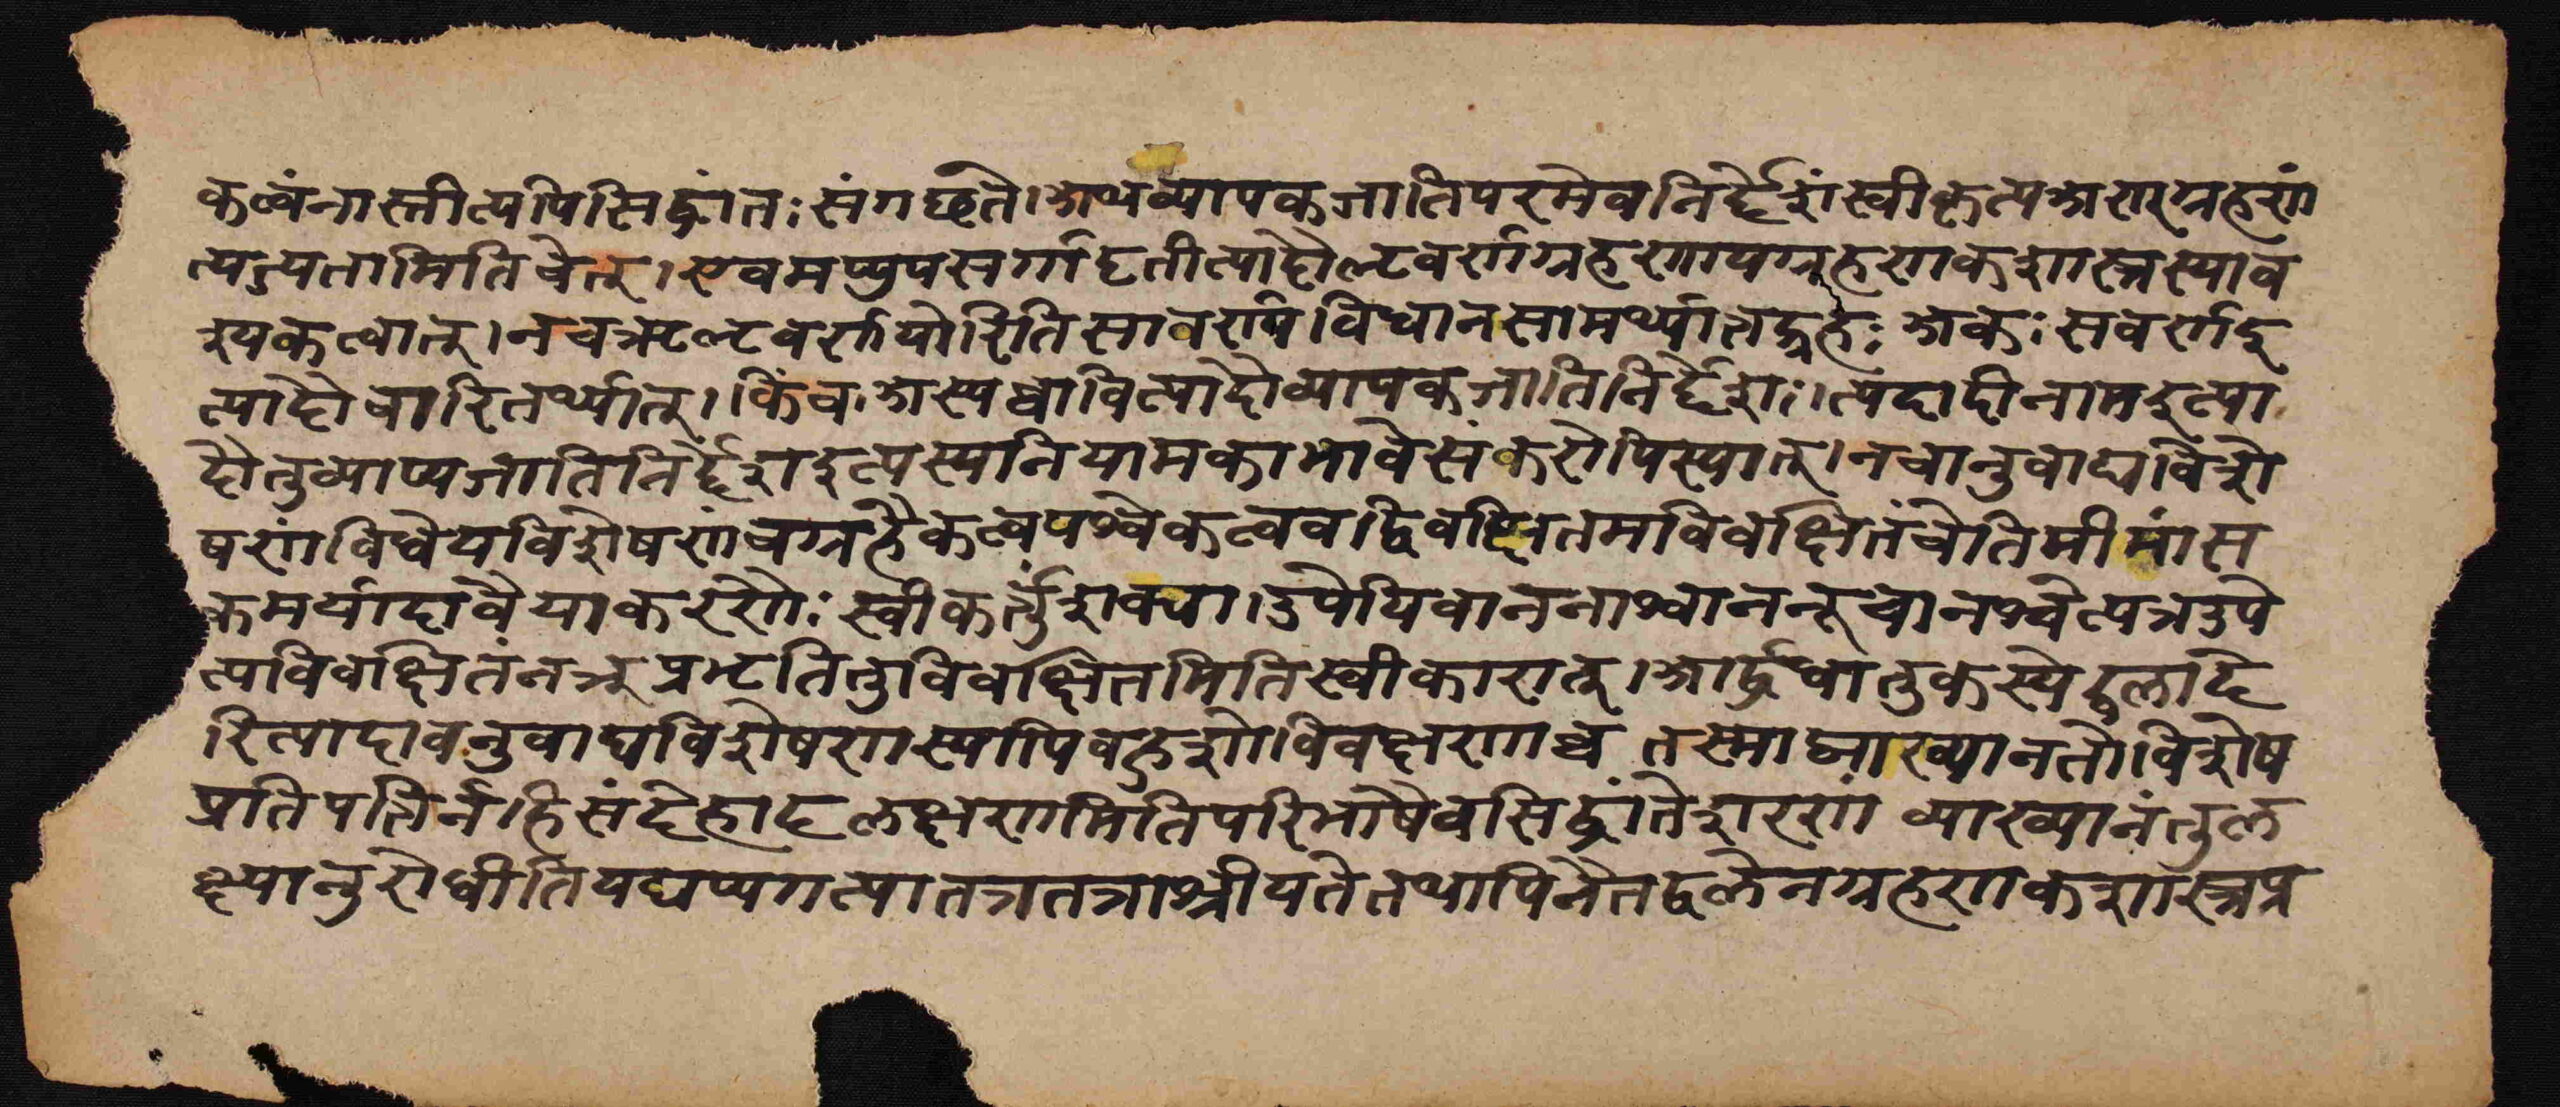 कत्वंनास्तीत्यपिसिद्धांतः संगछते।अथव्यापकजातिपरमेवनिर्द्देशंस्वीकृत्यअण्ग्रहणं
त्यज्यतामितिचेत्।एवमप्युपसर्गादृतीत्यादौल्टवर्णग्रहणायग्रहणकशास्त्रस्याव
श्यकत्वात्।नचऋल्टवर्णयोरितिसावर्ण्यविधानसामर्थ्यात्तद्ग्रहः अकः सवर्णेइ
त्यादौचारितर्थ्यात्।किंच।अस्यच्वावित्यादौव्यापकजातिनिर्द्देशः।त्यदादीनामइत्या
दौतुव्याप्यजातिनिर्द्देशइत्यस्यनियामकाभावेसंकरोपिस्यात्।नचानुवाद्यविशे
षणंविधेयविशेषणंचग्रहैकत्वपश्वेकत्ववद्विवक्षितमविवक्षितंचेतिमीमांस
कमर्यादावैयाकरणैः स्वीकर्त्तुंशक्या।उपेयिवाननाश्वाननूचानश्चेत्यत्रउपे
त्यविवक्षितंनञ्प्रभृतितुविवक्षितमितिस्वीकारात्।आर्द्धधातुकस्येड्वलादे
रित्यादावनुवाद्यविशेषणस्यापिबहुशोविवक्षणाच्च तस्माद्व्याख्यानतोविशेष
प्रतिपत्तिर्नहिसंदेहादलक्षणमितिपरिभाषैवसिद्धांतेशरणं व्याख्यानंतुल
क्ष्यानुरोधीतियद्यप्यगत्यातत्रतत्राश्रीयतेतथापिनैतद्बलेनग्रहणकशास्त्रप्र